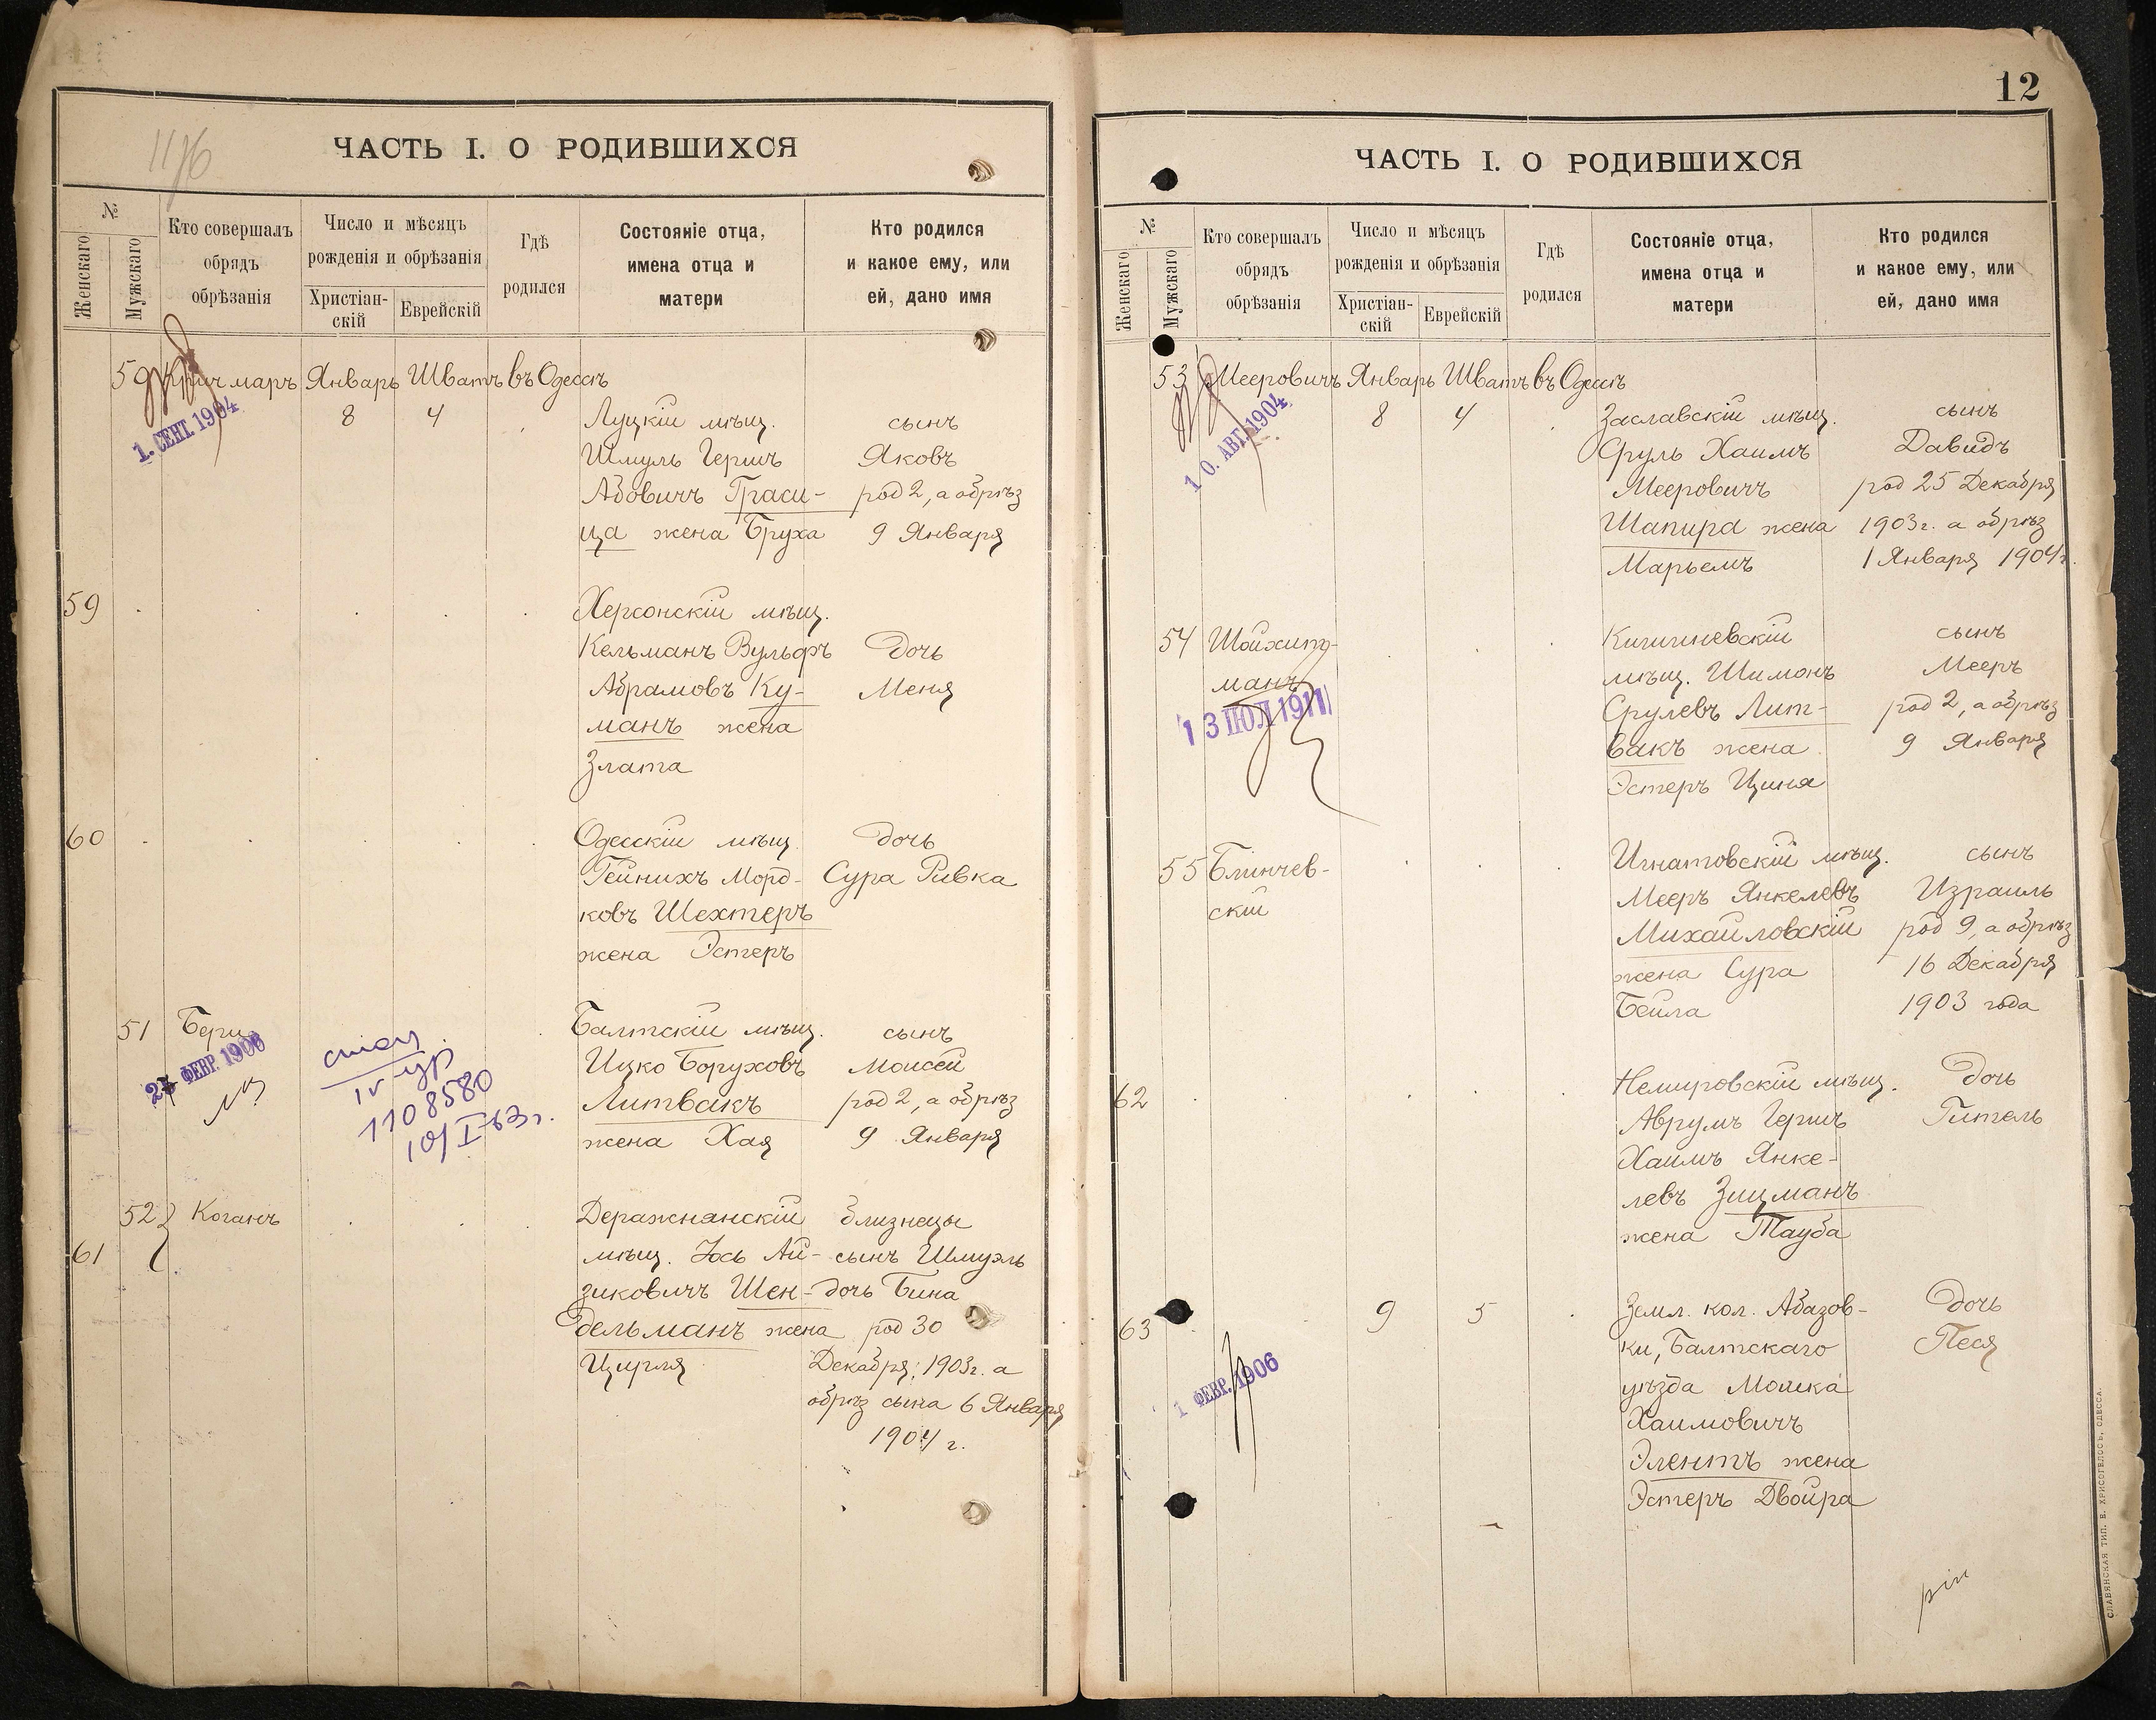 1176
ЧАСТЬ I. О РОДИВШИХСЯ
№
Женскаго
Мужскаго
Кто совершалъ
обрядъ
обрѣзанія
Число и мѣсяцъ
рожденія и обрѣзанія
Христіан-
скій
Еврейскій
Гдѣ
родился
Состояніе отца,
имена отца и
матери
Кто родился
и какое ему, или
ей, дано имя
Январь Шватъ въ Одессѣ
1. СЕНТ. 1904
8 4 Луцкій мѣщ. сынъ
Шмуль Гершъ Яковъ
Абовичъ Граси- род 2, а обрѣз
ца жена Бруха 9 Января
59 Херсонскій мѣщ.
Кельманъ Вульфъ Дочь
Абрамовъ Ку- Меня
манъ жена
Злата
60 Одесскій мѣщ. дочь
Гейнихъ Морд- Сура Ривка
ковъ Шехтеръ
жена Эстеръ
51 Балтскій мѣщ. сынъ
ФЕВР. 1906
Ицко Боруховъ Моисей
Литвакъ род 2, а обрѣз
жена Хая 9 Января
1108580
10/I-63г.
52 Коганъ Деражнянскій близнецы
61 мѣщ. Іось Ай- сынъ Шмуэль
зиковичъ Шен- дочь Бина
дельманъ жена род 30
Цирля Декабря 1903г. а
обрѣз сына 6 Января
1904 г.
12
ЧАСТЬ I. О РОДИВШИХСЯ
№
Женскаго
Мужскаго
Кто совершалъ
обрядъ
обрѣзанія
Число и мѣсяцъ
рожденія и обрѣзанія
Христіан-
скій
Еврейскій
Гдѣ
родился
Состояніе отца,
имена отца и
матери
Кто родился
и какое ему, или
ей, дано имя
53 Мееровичъ Январь Шватъ въ Одессѣ
10. АВГ. 1904
8 4 Заславскій мѣщ. сынъ
Сруль Хаимъ Давидъ
Мееровичъ род 25 Декабря
Шапира жена 1903г. а обрѣз
Марьемъ 1 Января 1904г.
54 Шойхит- Кишиневскій сынъ
манъ мѣщ. Шимонъ Мееръ
13 ІЮЛ 1911
Срулевъ Лит- род 2, а обрѣз
вакъ жена 9 Января
Эстеръ Ципа
55 Блинчев- Игнатовскій мѣщ. сынъ
скій Мееръ Янкелевъ Израиль
Михайловскій род 9, а обрѣз
жена Сура 16 Декабря
Бейла 1903 года
62 Немировскій мѣщ. Дочь
Аврумъ Гершъ Гитель
Хаимъ Янке-
левъ Зицманъ
жена Тауба
63 9 5 Земл. кол. Абазов- Дочь
ки, Балтскаго Песя
1 ФЕВР. 1906
уѣзда Мошка
Хаимовичъ
Элентъ жена
Эстеръ Двойра
СЛАВЯНСКАЯ ТИП. Е. ХРИСОГЕЛОСЪ, ОДЕССА.